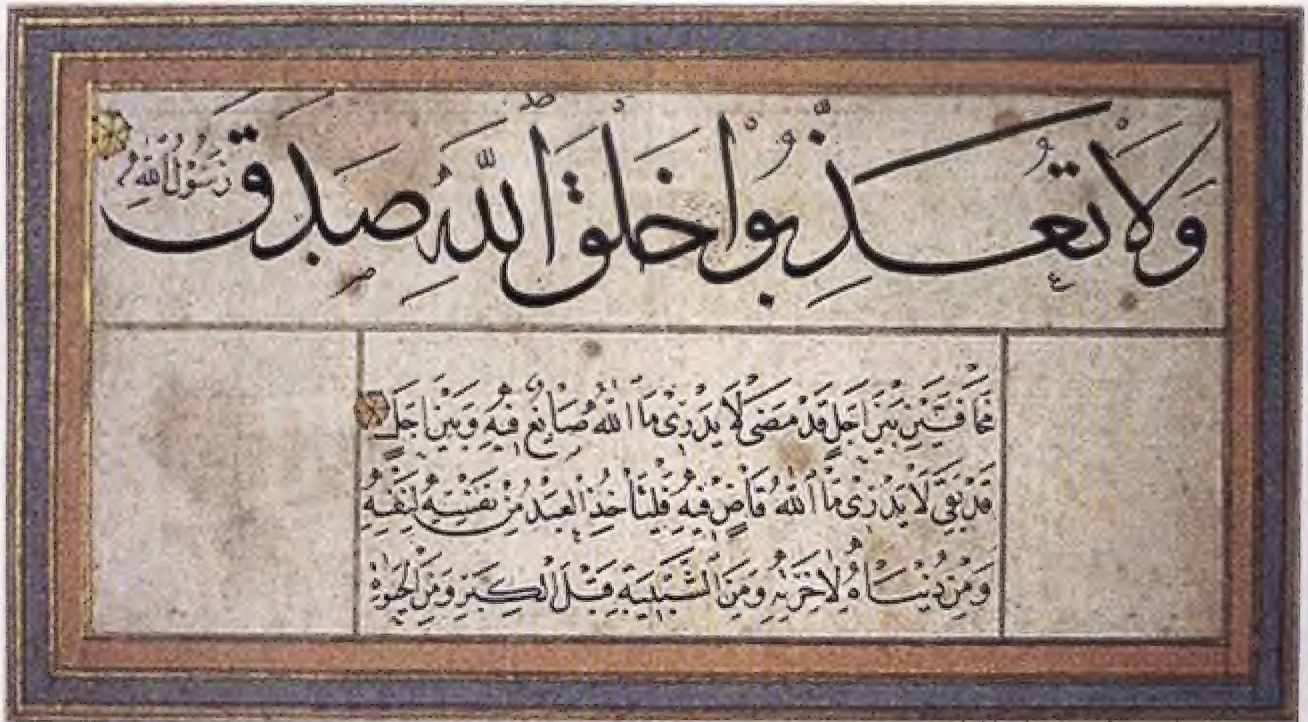 وَلَا تُعَذِّبُوا خَلْقَ اللَّهِ صَدَقَ رَسُولُ اللَّهِ
مَخَافَتَيْنِ بَيْنَ اَجَلٍ قَدْ مَضَى لَا يَدْرِى مَا اللَّهُ صَانِعٌ فِيهِ وَبَيْنَ اَجَلٍ
قَدْ بَقِىَ لَا يَدْرِى مَا اللَّهُ قَاضٍ فِيهِ فَلْيَأْخُذِ الْعَبْدُ مِنْ نَفْسِهِ لِنَفْسِهِ
وَمِنْ دُنْيَاهُ لِاٰخِرَتِهِ وَمِنَ الشَّبِيبَةِ قَبْلَ الْكِبَرِ وَمِنَ الْحَيٰوةِ